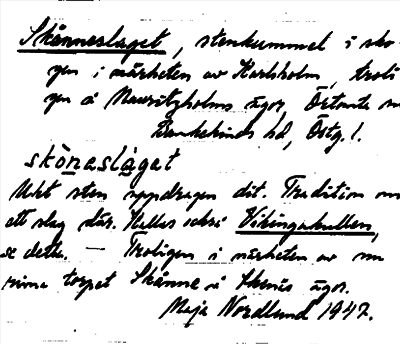 Skänneslaget, stenkummel i sko-
gen i närheten av Karlsholm, troli-
gen å Mauritzholms ägor, Östomta
Bankekinds hd, Östg. l.
skònaslàget
Ukt sten uppdragen dit. Tradition om
ett slag där. Kallas också Vikingakullen,
se detta. — Troligen i närheten av
torpet Skänne å ägor.
Maja Nordlund 1947.